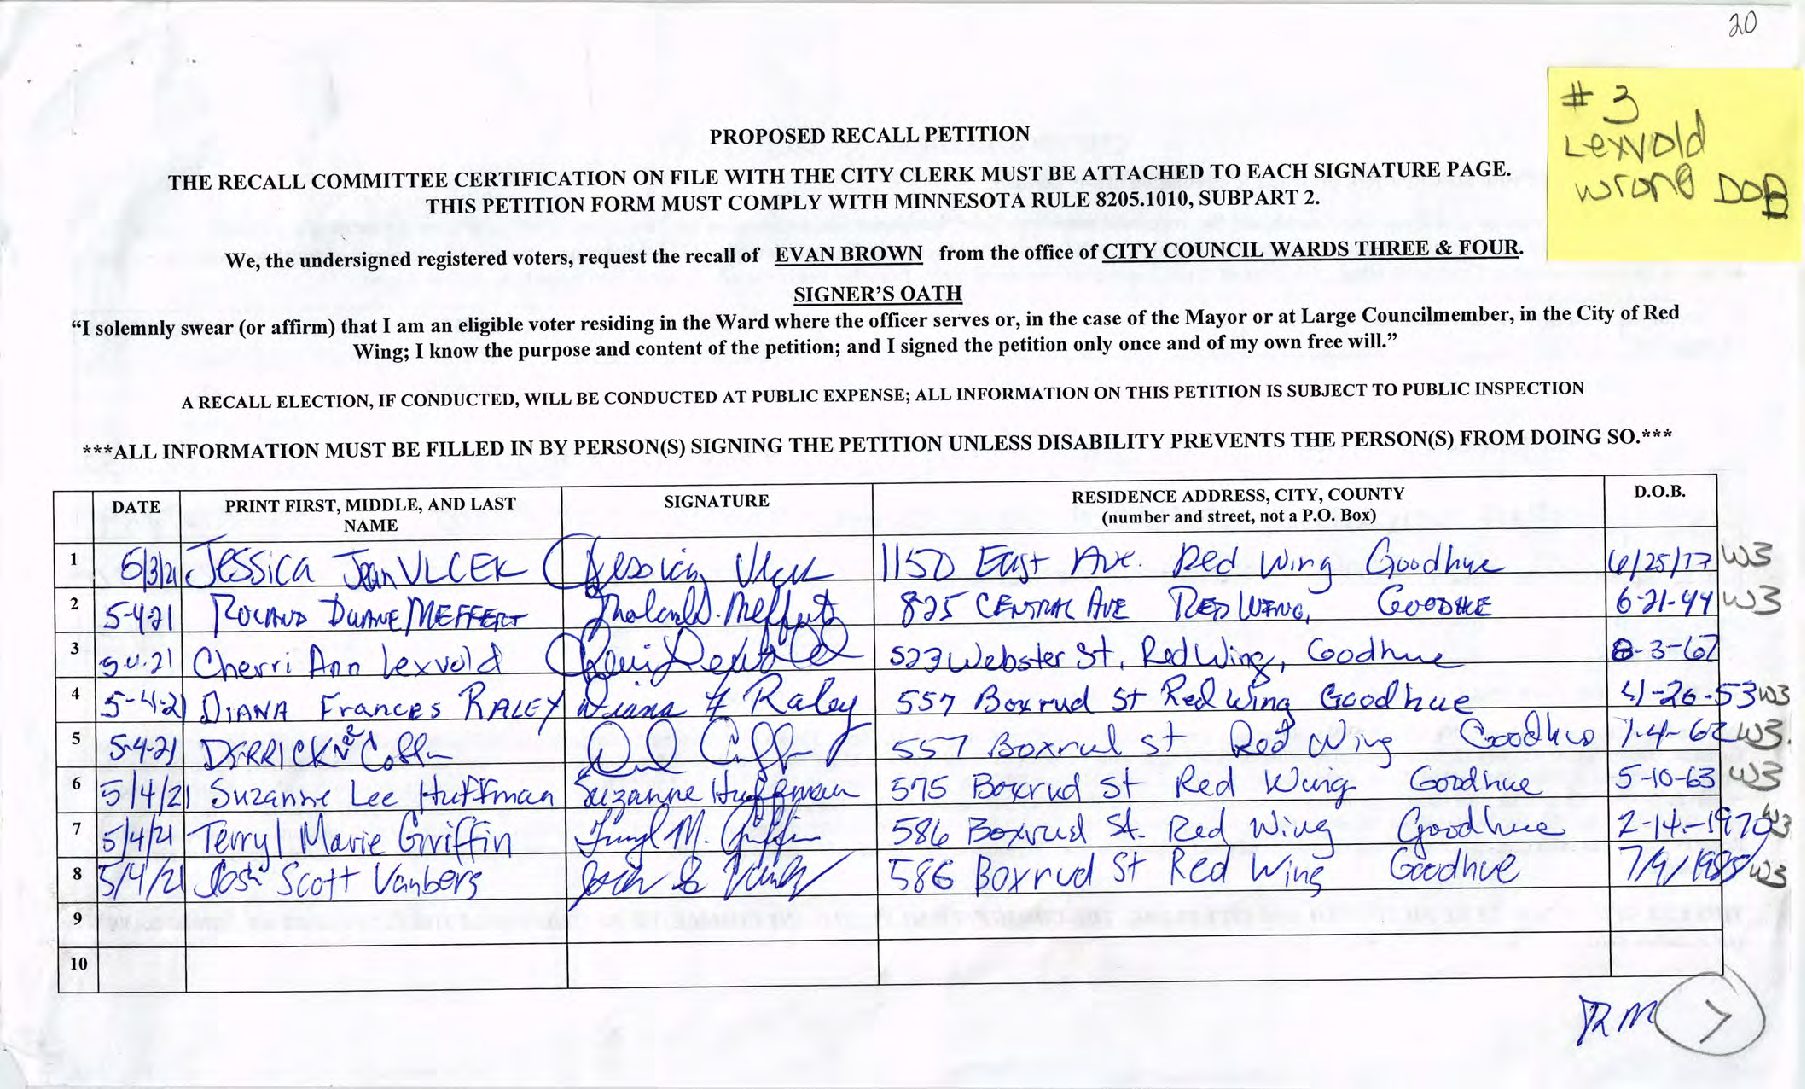 20
# 3
Lexvold
wrong DOB
PROPOSED RECALL PETITION
THE RECALL COMMITTEE CERTIFICATION ON FILE WITH THE CITY CLERK MUST BE ATTACHED TO EACH SIGNATURE PAGE.
THIS PETITION FORM MUST COMPLY WITH MINNESOTA RULE 8205.1010, SUBPART 2.
We, the undersigned registered voters, request the recall of EVAN BROWN from the office of CITY COUNCIL WARDS THREE & FOUR.
SIGNER'S OATH
“I solemnly swear (or affirm) that I am an eligible voter residing in the Ward where the officer serves or, in the case of the Mayor or at Large Councilmember, in the City of Red
Wing; I know the purpose and content of the petition; and I signed the petition only once and of my own free will.”
A RECALL ELECTION, IF CONDUCTED, WILL BE CONDUCTED AT PUBLIC EXPENSE; ALL INFORMATION ON THIS PETITION IS SUBJECT TO PUBLIC INSPECTION
***ALL INFORMATION MUST BE FILLED IN BY PERSON(S) SIGNING THE PETITION UNLESS DISABILITY PREVENTS THE PERSON(S) FROM DOING SO.***
DATE PRINT FIRST, MIDDLE, AND LAST NAME SIGNATURE RESIDENCE ADDRESS, CITY, COUNTY (number and street, not a P.O. Box) D.O.B.
1 Jessica Jean VLCEK Jessica Vlcek 1150 East Ave. Red Wing Goodhue W3
2 5-4-21 ROLAND DUANE MEFFERT 825 CENTRAL AVE RED WING, GOODHUE 6-21-44 W3
3 Cherri Ann Lexvold 523 Webster St, Red Wing, Goodhue 8-3-67
4 5-4-21 DIANA Frances RALEY Diana F Raley 557 Boxrud St Red Wing Goodhue 53 W3
5 5-4-21 DERRICK Coffin 557 Boxrud St Red Wing Goodhue W3
6 5/4/21 Suzanne Lee Huffman Suzanne Huffman 575 Boxrud St Red Wing Goodhue 5-10-63 W3
7 5/4/21 Terryl Marie Griffin Terryl M. Griffin 586 Boxrud St. Red Wing Goodhue 2-14-1970 W3
8 5/4/21 Josh Scott Vanberg 586 Boxrud St Red Wing Goodhue 7/9/1985 W3
9
10
RM 7